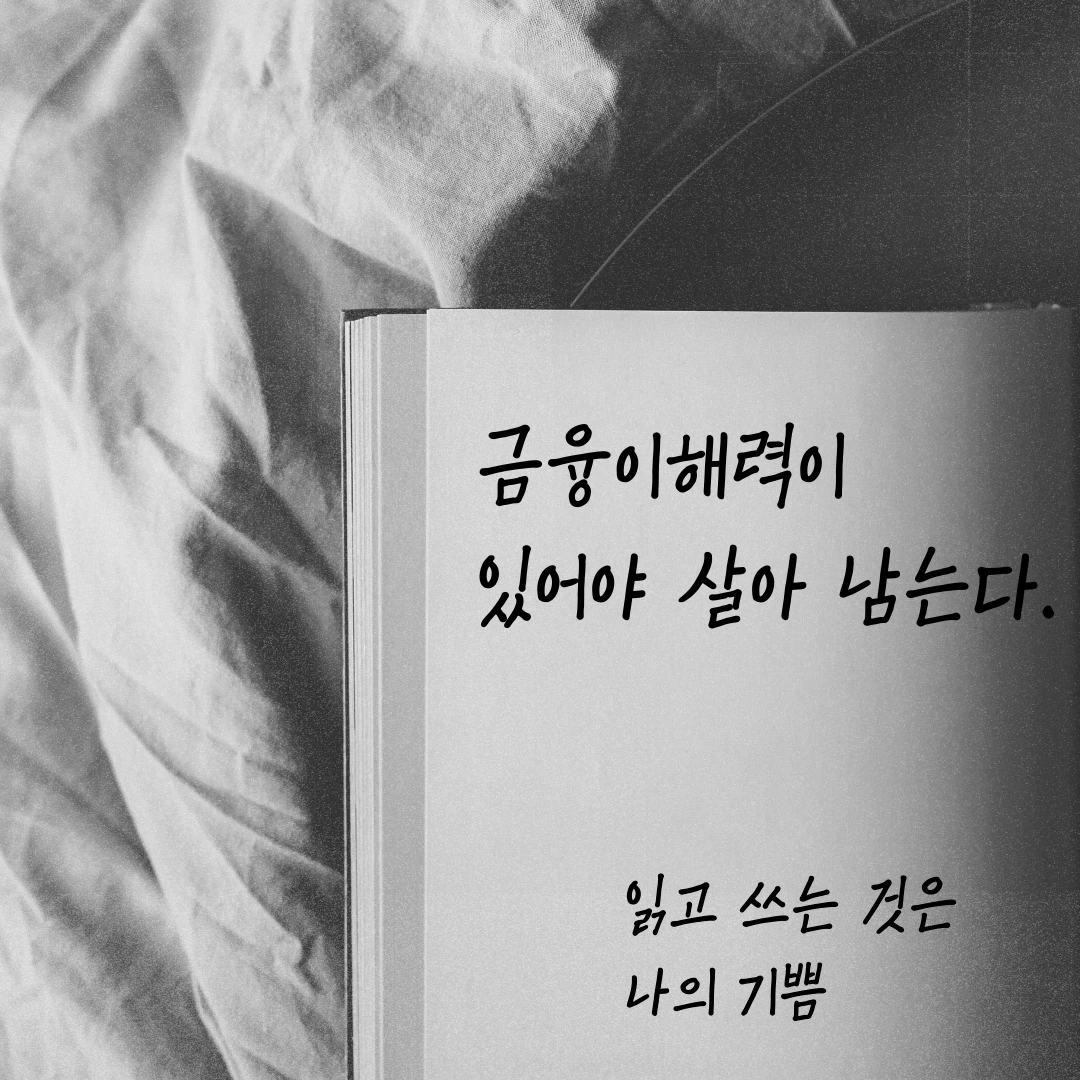 금융이해력이
있어야 살아 남는다.
읽고 쓰는 것은
나의 기쁨